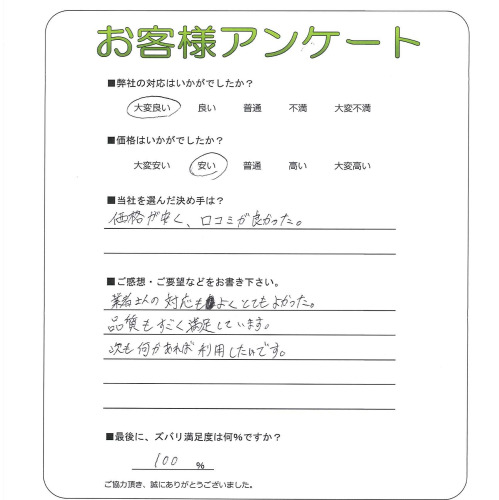 お客様アンケート
■弊社の対応はいかがでしたか？
大変良い 良い 普通 不満 大変不満
■価格はいかがでしたか？
大変安い 安い 普通 高い 大変高い
■当社を選んだ決め手は？
価格が安く、口コミが良かった。
■ご感想・ご要望などをお書き下さい。
業者さんの対応もよくとてもよかった。
品質もすごく満足しています。
次も何かあれば利用したいです。
■最後に、ズバリ満足度は何%ですか？
100 %
ご協力頂き、誠にありがとうございました。